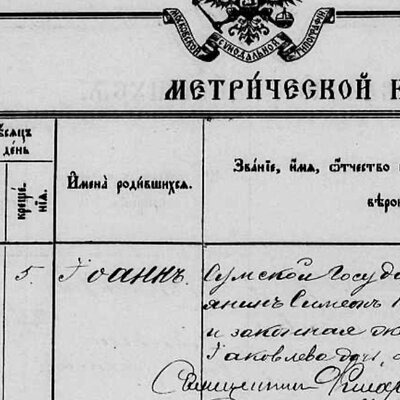 МОСКОВСКОЙ СѴНОДАЛЬНОЙ ТИПОГРАФІИ
МЕТРИ́ЧЕСКОЙ К
ѣсѧцъ
и де́нь
креще́нїѧ.
И҆мена̀ роди́вшихсѧ.
Зва́нїе, и҆́мѧ, ѻ҆́тчество
вѣро
5.
Іоаннъ.
Сумской Госуда
янинъ Симеонъ
и законная
Іаковлева
Священник